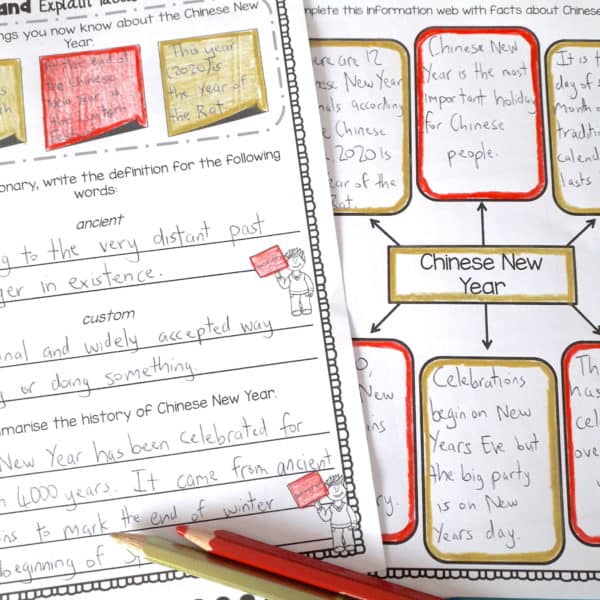 and Explain
ngs you now know about the Chinese New
Year.
the end of
the Chinese
New Year is
the
This year
(2020) is
the year of
the Rat.
onary, write the definition for the following
words:
ancient
g to the very distant past
ger in existence.
custom
onal and widely accepted way
g or doing something.
mmarise the history of Chinese New Year.
New Year has been celebrated for
n 4000 years. It came from ancient
ons to mark the end of winter
beginning of
mplete this information web with facts about Chinese
ere are 12
ese New Year
mals according
e Chinese
. 2020 is
ear of the
Rat
Chinese New
Year is the most
important holiday
for Chinese
people.
It is t
day of
Month o
traditi
calend
lasts
Chinese New
Year
New
ins
ry.
Celebrations
begin on New
Years Eve but
the big party
is on New
Years day.
Th
has
cel
ove